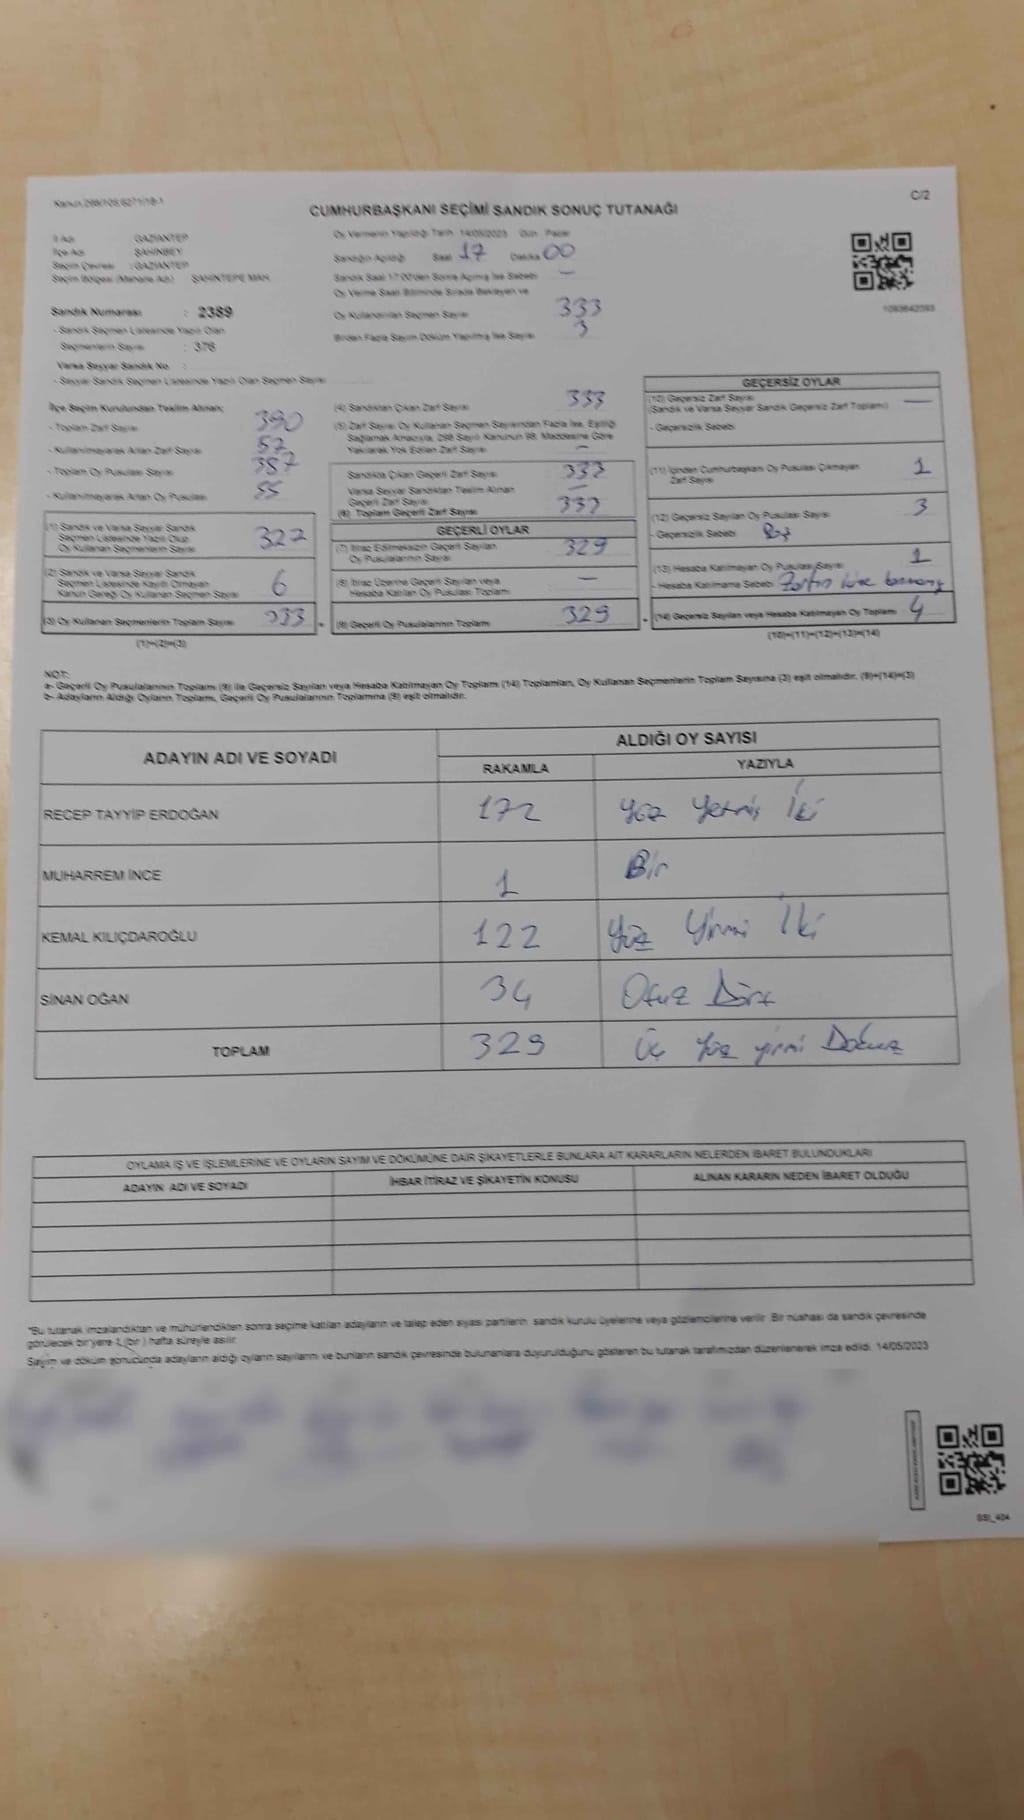 C/2
CUMHURBAŞKANI SEÇİMİ SANDIK SONUÇ TUTANAĞI
İl Adı : GAZİANTEP
İlçe Adı : ŞAHİNBEY
Seçim Çevresi : GAZİANTEP
Seçim Bölgesi (Mahalle Adı) : ŞAHİNTEPE MAH.
Oy Vermenin Yapıldığı Tarih 14/05/2023 Gün Pazar
Sandığın Açıldığı Saat 17 Dakika 00
Sandık Saat 17:00'den Sonra Açılmış İse Sebebi —
Oy Verme Saati Bitiminde Sırada Bekleyen ve
Oy Kullandırılan Seçmen Sayısı 333
Birden Fazla Sayım Döküm Yapılmış İse Sayısı 3
Sandık Numarası : 2389
- Sandık Seçmen Listesinde Yazılı Olan
Seçmenlerin Sayısı : 376
Varsa Seyyar Sandık No :
- Seyyar Sandık Seçmen Listesinde Yazılı Olan Seçmen Sayısı
İlçe Seçim Kurulundan Teslim Alınan;
- Toplam Zarf Sayısı 390
- Kullanılmayarak Artan Zarf Sayısı 57
- Toplam Oy Pusulası Sayısı 387
- Kullanılmayarak Artan Oy Pusulası 55
(1) Sandık ve Varsa Seyyar Sandık
Seçmen Listesinde Yazılı Olup
Oy Kullanan Seçmenlerin Sayısı 327
(2) Sandık ve Varsa Seyyar Sandık
Seçmen Listesinde Kayıtlı Olmayan
Kanun Gereği Oy Kullanan Seçmen Sayısı 6
(3) Oy Kullanan Seçmenlerin Toplam Sayısı 333
(1)+(2)=(3)
(4) Sandıktan Çıkan Zarf Sayısı 333
(5) Zarf Sayısı Oy Kullanan Seçmen Sayısından Fazla İse, Eşitliği
Sağlamak Amacıyla, 298 Sayılı Kanunun 98. Maddesine Göre
Yakılarak Yok Edilen Zarf Sayısı —
Sandıkta Çıkan Geçerli Zarf Sayısı 333
Varsa Seyyar Sandıktan Teslim Alınan
Geçerli Zarf Sayısı —
(6) Toplam Geçerli Zarf Sayısı 333
GEÇERLİ OYLAR
(7) İtiraz Edilmeksizin Geçerli Sayılan
Oy Pusulalarının Sayısı 329
(8) İtiraz Üzerine Geçerli Sayılan veya
Hesaba Katılan Oy Pusulası Toplamı —
(9) Geçerli Oy Pusulalarının Toplamı 329
GEÇERSİZ OYLAR
(10) Geçersiz Zarf Sayısı —
(Sandık ve Varsa Seyyar Sandık Geçersiz Zarf Toplamı)
- Geçersizlik Sebebi
(11) İçinden Cumhurbaşkanı Oy Pusulası Çıkmayan
Zarf Sayısı 1
(12) Geçersiz Sayılan Oy Pusulası Sayısı 3
- Geçersizlik Sebebi
(13) Hesaba Katılmayan Oy Pusulası Sayısı 1
- Hesaba Katılmama Sebebi
(14) Geçersiz Sayılan veya Hesaba Katılmayan Oy Toplamı 4
(10)+(11)+(12)+(13)=(14)
NOT:
a- Geçerli Oy Pusulalarının Toplamı (9) ile Geçersiz Sayılan veya Hesaba Katılmayan Oy Toplamı (14) Toplamları, Oy Kullanan Seçmenlerin Toplam Sayısına (3) eşit olmalıdır. (9)+(14)=(3)
b- Adayların Aldığı Oyların Toplamı, Geçerli Oy Pusulalarının Toplamına (9) eşit olmalıdır.
ADAYIN ADI VE SOYADI ALDIĞI OY SAYISI
RAKAMLA YAZIYLA
RECEP TAYYİP ERDOĞAN 172 Yüz Yetmiş İki
MUHARREM İNCE 1 Bir
KEMAL KILIÇDAROĞLU 122 Yüz Yirmi İki
SİNAN OĞAN 34 Otuz Dört
TOPLAM 329 Üç Yüz yirmi Dokuz
OYLAMA İŞ VE İŞLEMLERİNE VE OYLARIN SAYIM VE DÖKÜMÜNE DAİR ŞİKAYETLERLE BUNLARA AİT KARARLARIN NELERDEN İBARET BULUNDUKLARI
ADAYIN ADI VE SOYADI İHBAR İTİRAZ VE ŞİKAYETİN KONUSU ALINAN KARARIN NEDEN İBARET OLDUĞU
"Bu tutanak imzalandıktan ve mühürlendikten sonra seçime katılan adayların ve talep eden siyasi partilerin, sandık kurulu üyelerine veya gözlemcilerine verilir. Bir nüshası da sandık çevresinde
görülecek bir yere 1 (bir) hafta süreyle asılır.
Sayım ve döküm sonucunda adayların aldığı oyların sayılarını ve bunların sandık çevresinde bulunanlara duyurulduğunu gösteren bu tutanak tarafımızdan düzenlenerek imza edildi. 14/05/2023